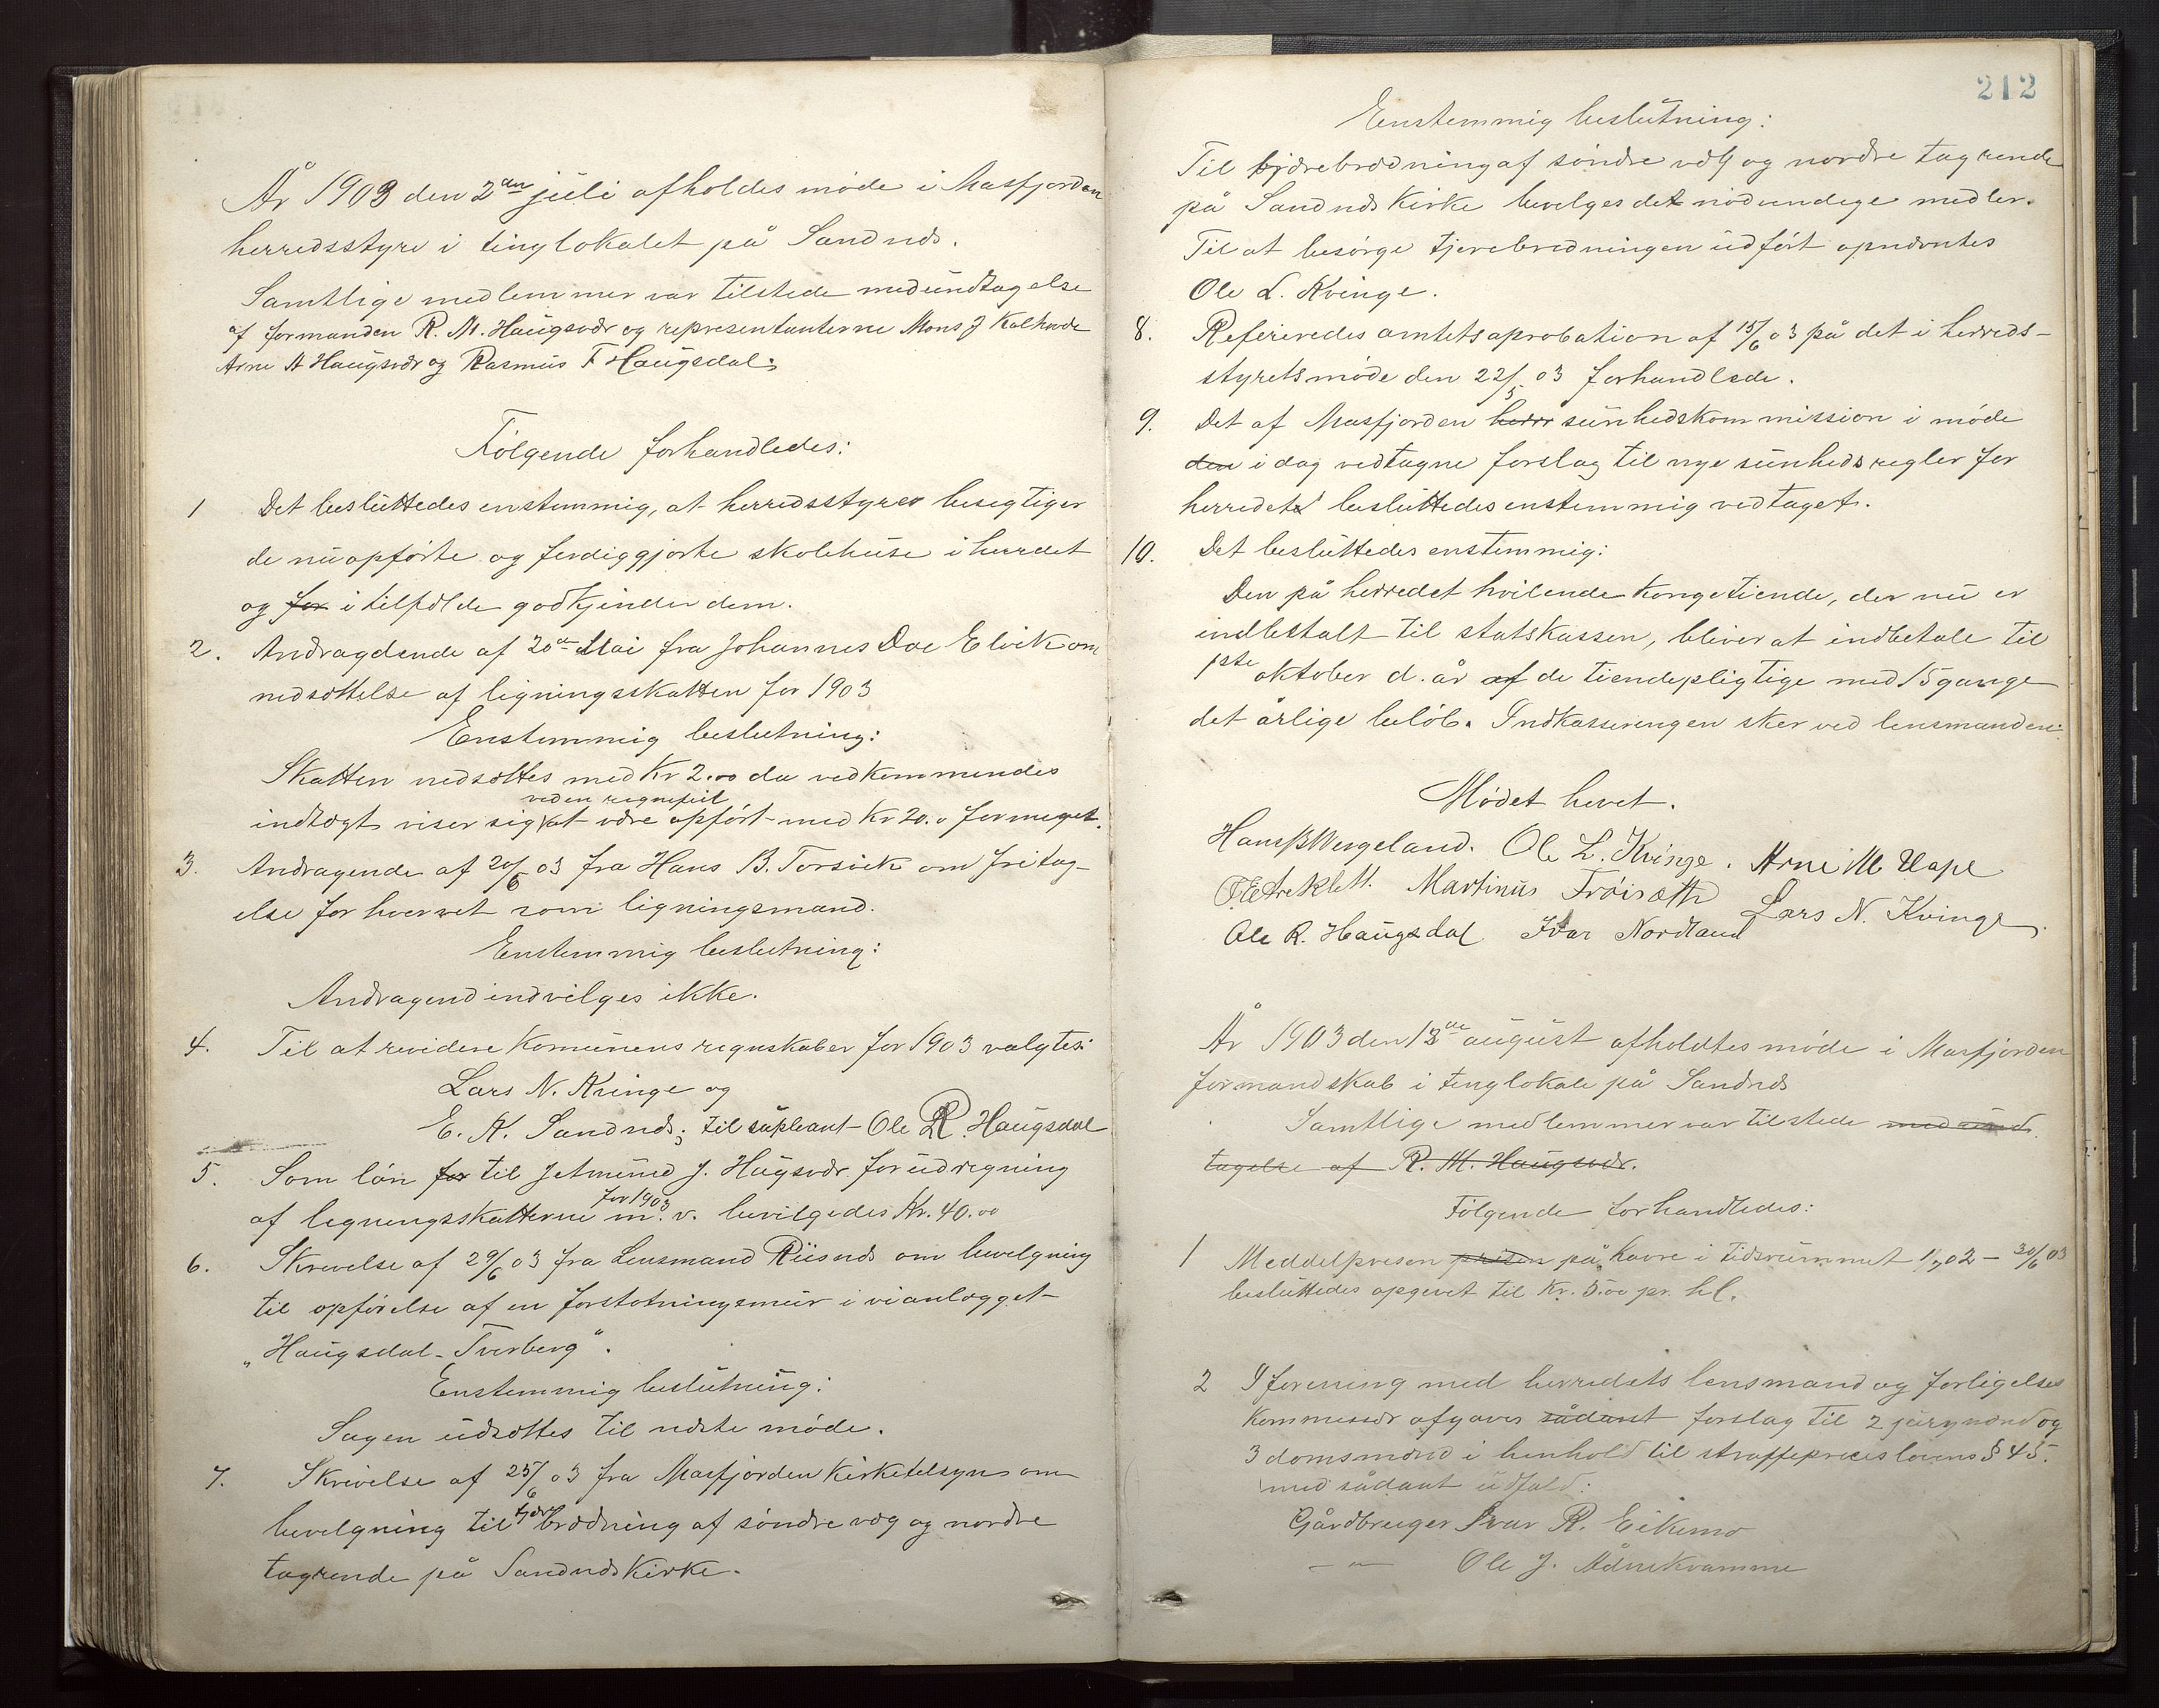 År 1903 den 2den juli afholdes møde i Masfjorden
herredsstyre i tinglokalet på Sandnæs.
Samtlige medlemmer var tilstede med undtagelse
af formanden R. M. Haugsvær og representanterne Mons J Kalhovde
Arne A Haugsvær og Rasmus F Haugsdal.
Følgende forhandledes:
1 Det besluttedes enstemmig, at herredsstyret besegtiger
de nu opførte og ferdiggjorte skolehuse i herredet
og for i tilfælde godkjender dem.
2. Andragdende af 20de Mai fra Johannes Doe Elvik om
nedsættelse af ligningsskatten for 1903
Enstemmig beslutning:
Skatten nedsættes med Kr 2.00 da vedkommendes
ved en regnefeil
indtægt viser sig at være opført med Kr 20.0 formeget.
3. Andragende af 20/6 03 fra Hans B. Torsvik om fritag-
else for hvervet som ligningsmand.
Enstemmig beslutning:
Andragend indvilges ikke.
4. Til at revidere Komunens regnskaber for 1903 valgtes:
Lars N. Kvinge og
E. K. Sandnæs; til supleant Ole R. Haugsdal
5. Som løn for til Jetmund J. Hugsvær for udregning
for 1903
af legningsskatterne m. v. bevilgedes Kr. 40.00
6. Skrevelse af 29/6 03 fra Lensmand Riisnæs om bevelgning
til opførelse af en forstøtningsmur i vianlægget
„Haugsdal-Tverberg“.
Enstemmig beslutning:
Sagen udsættes til næste møde.
7. Skrivelse af 25/6 03 fra Masfjorden Kirketelsyn om
tjær
bevelgning til brædning af søndre væg og nordre
tagrende på Sandnæs Kirke.
212
Enstemmig beslutning:
Til tjærebrædning af søndre væg og nordre tagrende
på Sandnæs Kirke bevelges det nødvendege medler.
Til at besørge tjerebredningen udført opnævntes
Ole L. Kvinge.
8. Refereredes amtets aprobation af 15/6 03 på det i herreds-
styrets møde den 22/5 03 forhandlede.
9. Det af Masfjorden herr sunhedskommission i møde
den i dag vedtagne forslag til nye sunhedsregler for
herredet besluttedes enstemmig vedtaget.
10. Det besluttedes enstemmig:
Den på herredet hvilende Kongetiende, der nu er
indbetalt til statskassen, bliver at indbetale til
1ste oktober d. år af de tiendepligtige med 15 gange
det årlige beløb. Indkasseringen sker ved lensmanden.
Mødet hevet.
Hans B Wergeland. Ole L. Kvinge. Arne M Hope
Martinus Trøisæth Lars N. Kvinge.
Ole R. Haugsdal Ivar Nordland
År 1903 den 13de august afholdtes møde i Masfjorden
formandskab i tinglokale på Sandnæs
Samtlige medlemmer var tilstede med und
tagelse af R. M. Haugsvær.
Følgende forhandledes:
1 Meddelprisen prisen på Havre i tidsrummet 1/7 02 - 30/6 03
besluttedes opgevet til Kr. 5.00 pr. hl.
2 I forening med herredets lensmand og forligelses
kommissær afgaves sådant forslag til 2 jurymænd og
3 domsmænd i henhold til straffeproceslovens § 45.
med sådant udfald:
Gårdbruger Ivar R. Eikemo
— „ — Ole J. Ådnekvamme